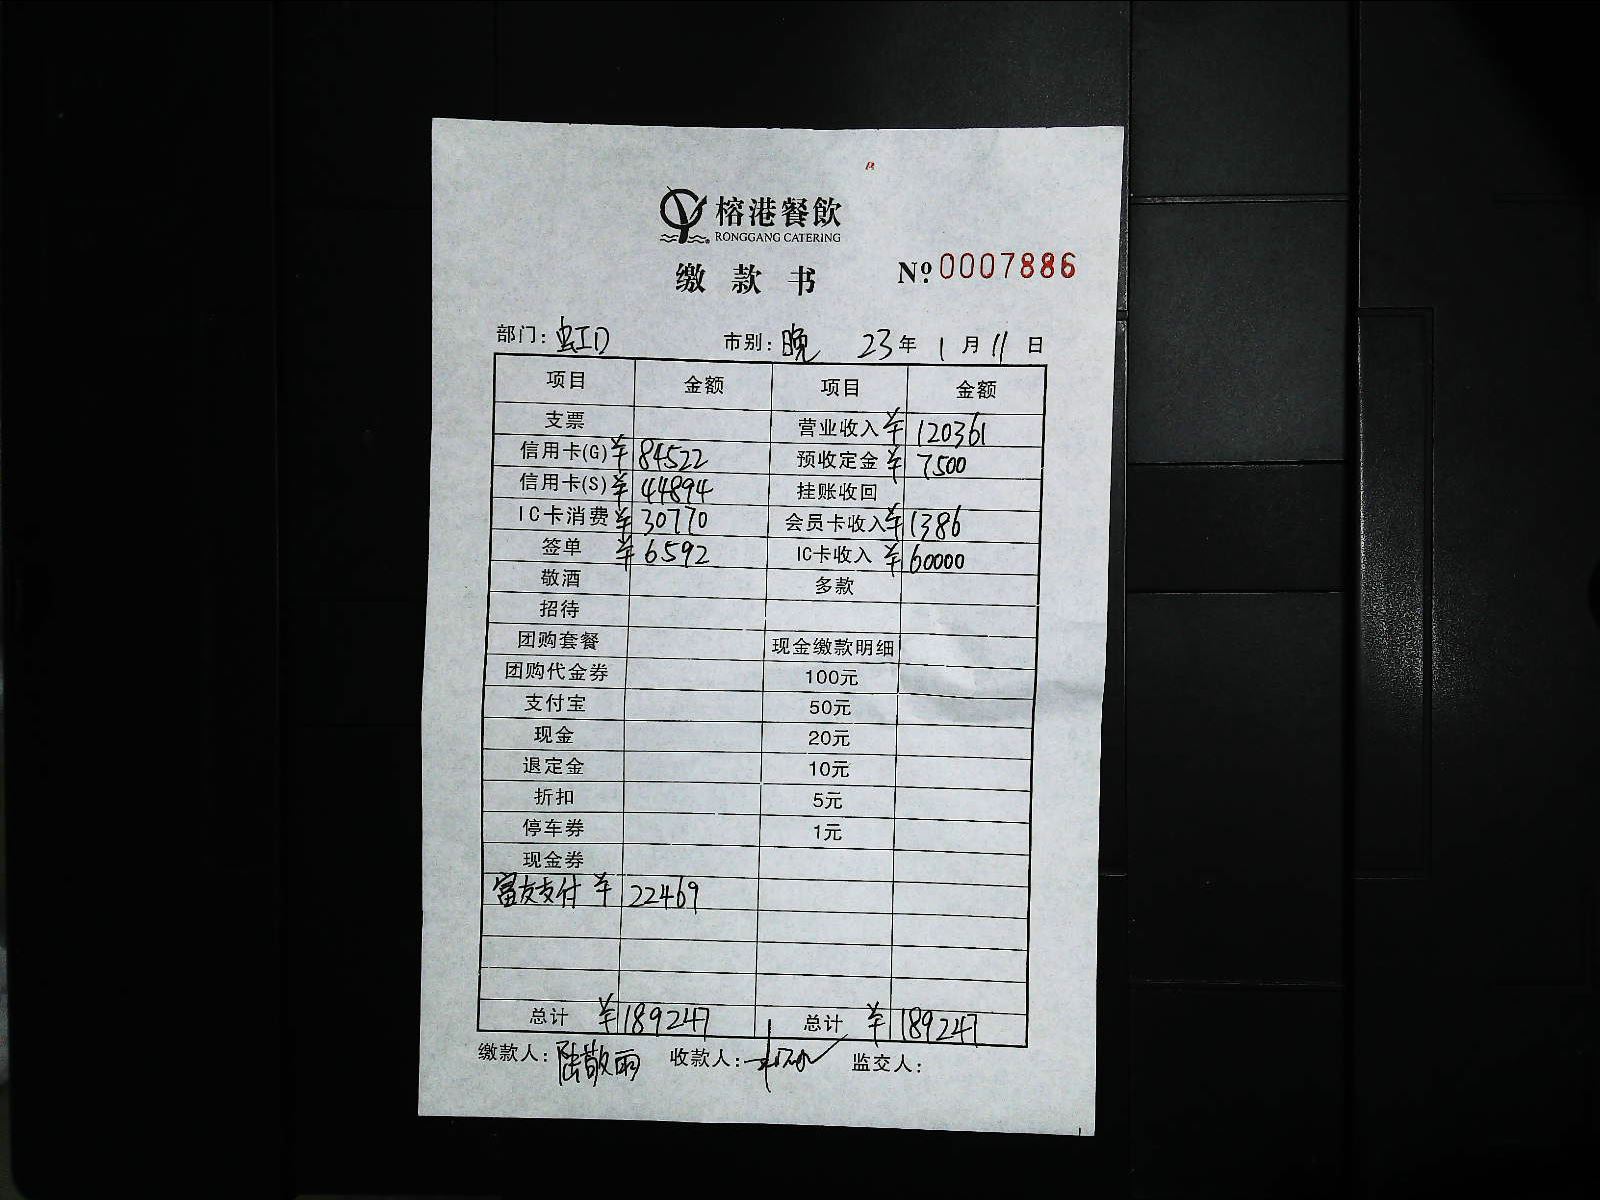 榕港餐飲
RONGGANG CATERING
缴款书 №0007886
部门：虹口 市别：晚 23年1月11日
项目 金额 项目 金额
支票 营业收入 ¥120361
信用卡(G) ¥84522 预收定金 ¥7500
信用卡(S) ¥44894 挂账收回
IC卡消费 ¥30770 会员卡收入 ¥1386
签单 ¥6592 IC卡收入 ¥60000
敬酒 多款
招待
团购套餐 现金缴款明细
团购代金券 100元
支付宝 50元
现金 20元
退定金 10元
折扣 5元
停车券 1元
现金券
富友支付 ¥22469
总计 ¥189247 总计 ¥189247
缴款人：陆敬雨 收款人： 监交人：